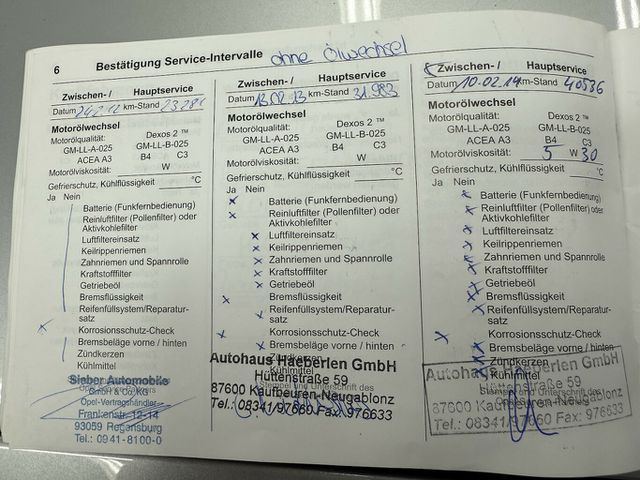 6 Bestätigung Service-Intervalle ohne Ölwechsel
Zwischen- / Hauptservice
Datum km-Stand
Motorölwechsel
Motorölqualität: Dexos 2 ™
GM-LL-A-025 GM-LL-B-025
ACEA A3 B4 C3
Motorölviskosität: W
Gefrierschutz, Kühlflüssigkeit °C
Ja Nein
Batterie (Funkfernbedienung)
Reinluftfilter (Pollenfilter) oder
Aktivkohlefilter
Luftfiltereinsatz
Keilrippenriemen
Zahnriemen und Spannrolle
Kraftstofffilter
Getriebeöl
Bremsflüssigkeit
Reifenfüllsystem/Reparatur-
satz
Korrosionsschutz-Check
Bremsbeläge vorne / hinten
Zündkerzen
Kühlmittel
Sieber Automobile
GmbH & Co. KG
Opel-Vertragshändler
Frankenstr. 12-14
93059 Regensburg
Tel.: 09 41-8100-0
Zwischen- / Hauptservice
Datum 13.02.13 km-Stand 31.983
Motorölwechsel
Motorölqualität: Dexos 2 ™
GM-LL-A-025 GM-LL-B-025
ACEA A3 B4 C3
Motorölviskosität: W
Gefrierschutz, Kühlflüssigkeit °C
Ja Nein
Batterie (Funkfernbedienung)
Reinluftfilter (Pollenfilter) oder
Aktivkohlefilter
Luftfiltereinsatz
Keilrippenriemen
Zahnriemen und Spannrolle
Kraftstofffilter
Getriebeöl
Bremsflüssigkeit
Reifenfüllsystem/Reparatur-
satz
Korrosionsschutz-Check
Bremsbeläge vorne / hinten
Zündkerzen
Kühlmittel
Autohaus Haeberlen GmbH
Hüttenstraße 59
Stempel und Unterschrift des
87600 Kaufbeuren-Neugablonz
Tel.: 08341/97660 Fax: 976633
Zwischen- / Hauptservice
Datum 10.02.14 km-Stand 40536
Motorölwechsel
Motorölqualität: Dexos 2 ™
GM-LL-A-025 GM-LL-B-025
ACEA A3 B4 C3
Motorölviskosität: 5 W 30
Gefrierschutz, Kühlflüssigkeit °C
Ja Nein
Batterie (Funkfernbedienung)
Reinluftfilter (Pollenfilter) oder
Aktivkohlefilter
Luftfiltereinsatz
Keilrippenriemen
Zahnriemen und Spannrolle
Kraftstofffilter
Getriebeöl
Bremsflüssigkeit
Reifenfüllsystem/Reparatur-
satz
Korrosionsschutz-Check
Bremsbeläge vorne / hinten
Zündkerzen
Kühlmittel
Autohaus Haeberlen GmbH
Hüttenstraße 59
Stempel und Unterschrift des
87600 Kaufbeuren-Neugablonz
Tel.: 08341/97660 Fax: 976633